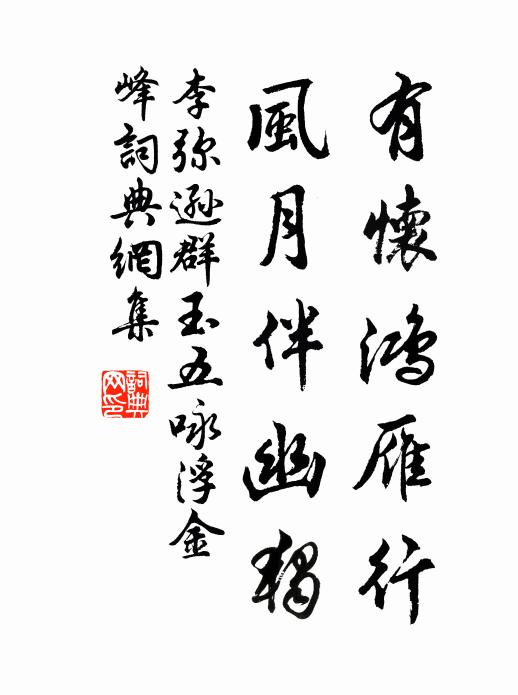 有懷鴻雁行
風月伴幽獨
李弥遜群玉五咏浮金
峰詞典網集
詞典网印